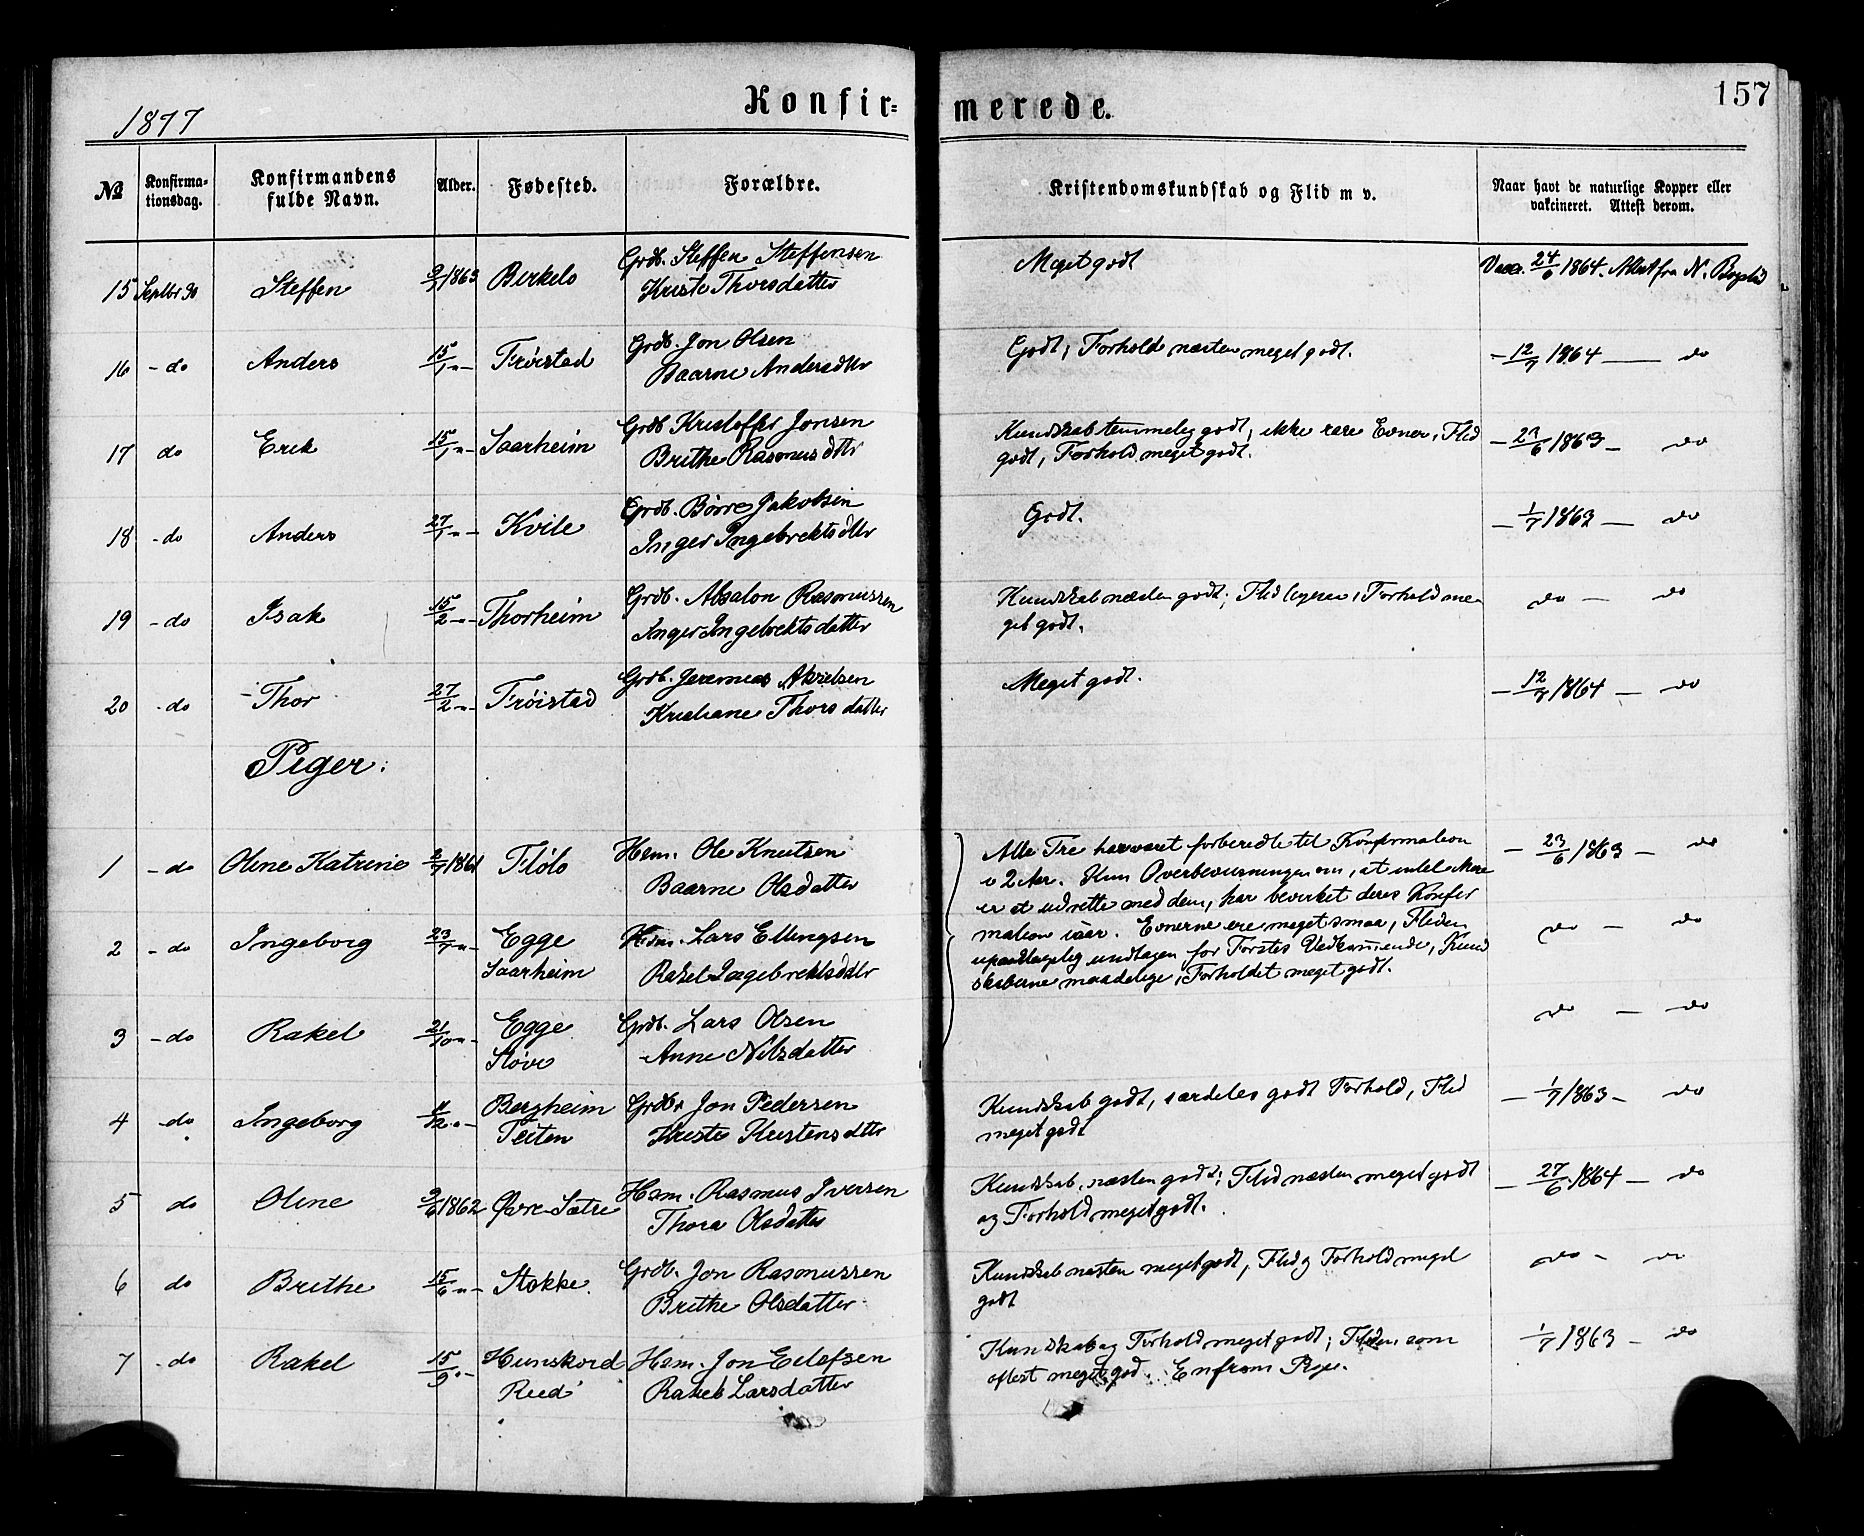 1877
Konfir=
merede.
157
No
Konfirma-
tionsdag.
Konfirmandens
fulde Navn.
Alder.
Fødested.
Forældre.
Kristendomskundskab og Flid m v.
Naar havt de naturlige Kopper eller
vakcineret. Attest derom.
15 Septbr 30 Steffen 1863 Birkelo Grdb. Steffen Steffensen
Thorsdatter
Meget godt
24/6 1864. Attest fra N.
16 - do Anders 15/1 " - Frøistad Grdb. Jon Olsen
Baarne Andersdtr
Godt; Forhold næsten meget godt.
- 12/7 1864 — do
17 do Erik 15/1 " - Saarheim Grdb Kristoffer Jonsen
Brithe Rasmusdtr
Kundskab temmelig godt; ikke rare Evner, Flid
godt, Forhold meget godt.
- 23/6 1863 - do
18 - do Anders 27/1 " - Kvile Grdb. Børre Jakobsen
Inger Ingebrektsdtr
Godt.
- 1/7 1863 — do
19 - do Isak 15/2 " - Thorheim Grdb. Absalon Rasmussen
Inger Ingebrektsdatter
Kundskab næsten godt; Flid Forhold me-
get godt.
do — do
20 - do Thor 27/2 " - Frøistad Grdb. Jeremias Akselsen
Kristiane Thorsdatter
Meget godt.
- 12/7 1864 — do
Piger:
1 - do Oline Katrine 1861 Flølo Hsm. Ole Knutsen
Baarne Olsdatter
Alle Tre har været forberedte til Konfirmation
i 2 Aar. Kun Overbevisningen om, at intet Mere
er at udrette med dem, har bevirket deres Konfir
mation iaar. Evnerne ere meget smaa, Fliden
upaaklagelig undtagen for Førstes Vedkommende, Kund
skaberne maadelige, Forholdet meget godt.
- 23/6 1863 - do
2 - do Ingeborg 23/7 " - Egge
Saarheim
Hsm. Lars Ellingsen
Rakel Ingebrektsdtr
do — do
3 - do Rakel 21/10 " - Egge
Støve
Grdb. Lars Olsen
Anne Nilsdatter
do — do
4 - do Ingeborg Bergheim
Teiten
Grdb. Jon Pedersen
Kundskab godt, særdeles godt Forhold, Flid
meget godt
- 1/7 1863 - do
5 do Oline 1862 Øvre Sætre Hsm. Rasmus Iversen
Thora Olsdatter
Kundskab næsten godt; Flid næsten meget godt
og Forhold meget godt.
- 27/6 1864 - do
6 do Brithe 15/6 " - Stokke. Grdb. Jon Rasmussen
Brithe Olsdatter
Kundskab næsten meget godt, Flid og Forhold meget
godt
do - do
7 - do Rakel 15/9 " - Hunskord
Reed
Hsm. Jon Eilefsen
Rakel Larsdatter
Kundskab og Forhold meget godt; Fliden som
oftest meget god. En from Pige.
1/7 1863 - do